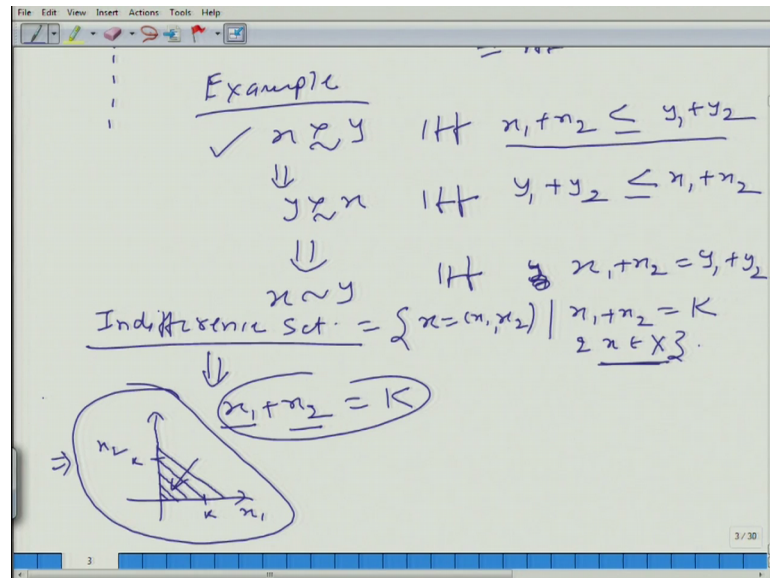 File Edit View Insert Actions Tools Help
Example
✓ x ≿ y iff x₁+x₂ ≤ y₁+y₂
⇓
y ≿ x iff y₁+y₂ ≤ x₁+x₂
⇓
x ∼ y iff x₁+x₂ = y₁+y₂
Indifference Set = { x=(x₁,x₂) | x₁+x₂ = K
& x ∈ X}.
⇓
x₁+x₂ = K
⇒ x₂ K
K x₁
3/30
3